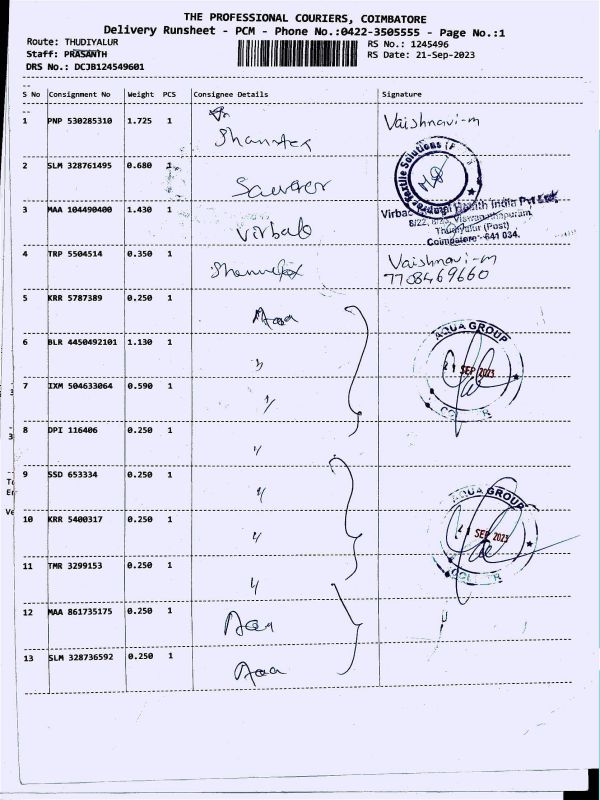 THE PROFESSIONAL COURIERS, COIMBATORE
Delivery Runsheet - PCM - Phone No.:0422-3505555 - Page No.:1
Route: THUDIYALUR RS No.: 1245496
Staff: PRASANTH RS Date: 21-Sep-2023
DRS No.: DCJB124549601
S No Consignment No Weight PCS Consignee Details Signature
1 PNP 530285310 1.725 1 Vaishnavi-m
2 SLM 328761495 0.680 1
Textile Solutions
3 MAA 104490400 1.430 1 Virbac
Virbac Health India Pvt Ltd
Thudiyalur (Post)
Coimbatore - 641 034.
4 TRP 5504514 0.350 1 Vaishnavi-m
7708469660
5 KRR 5787389 0.250 1
AQUA GROUP
6 BLR 4450492101 1.130 1 "
21 SEP 2023
7 IXM 504633064 0.590 1 "
8 DPI 116406 0.250 1 "
9 SSD 653334 0.250 1 "
AQUA GROUP
10 KRR 5400317 0.250 1 "
21 SEP 2023
11 TMR 3299153 0.250 1 "
12 MAA 861735175 0.250 1
13 SLM 328736592 0.250 1